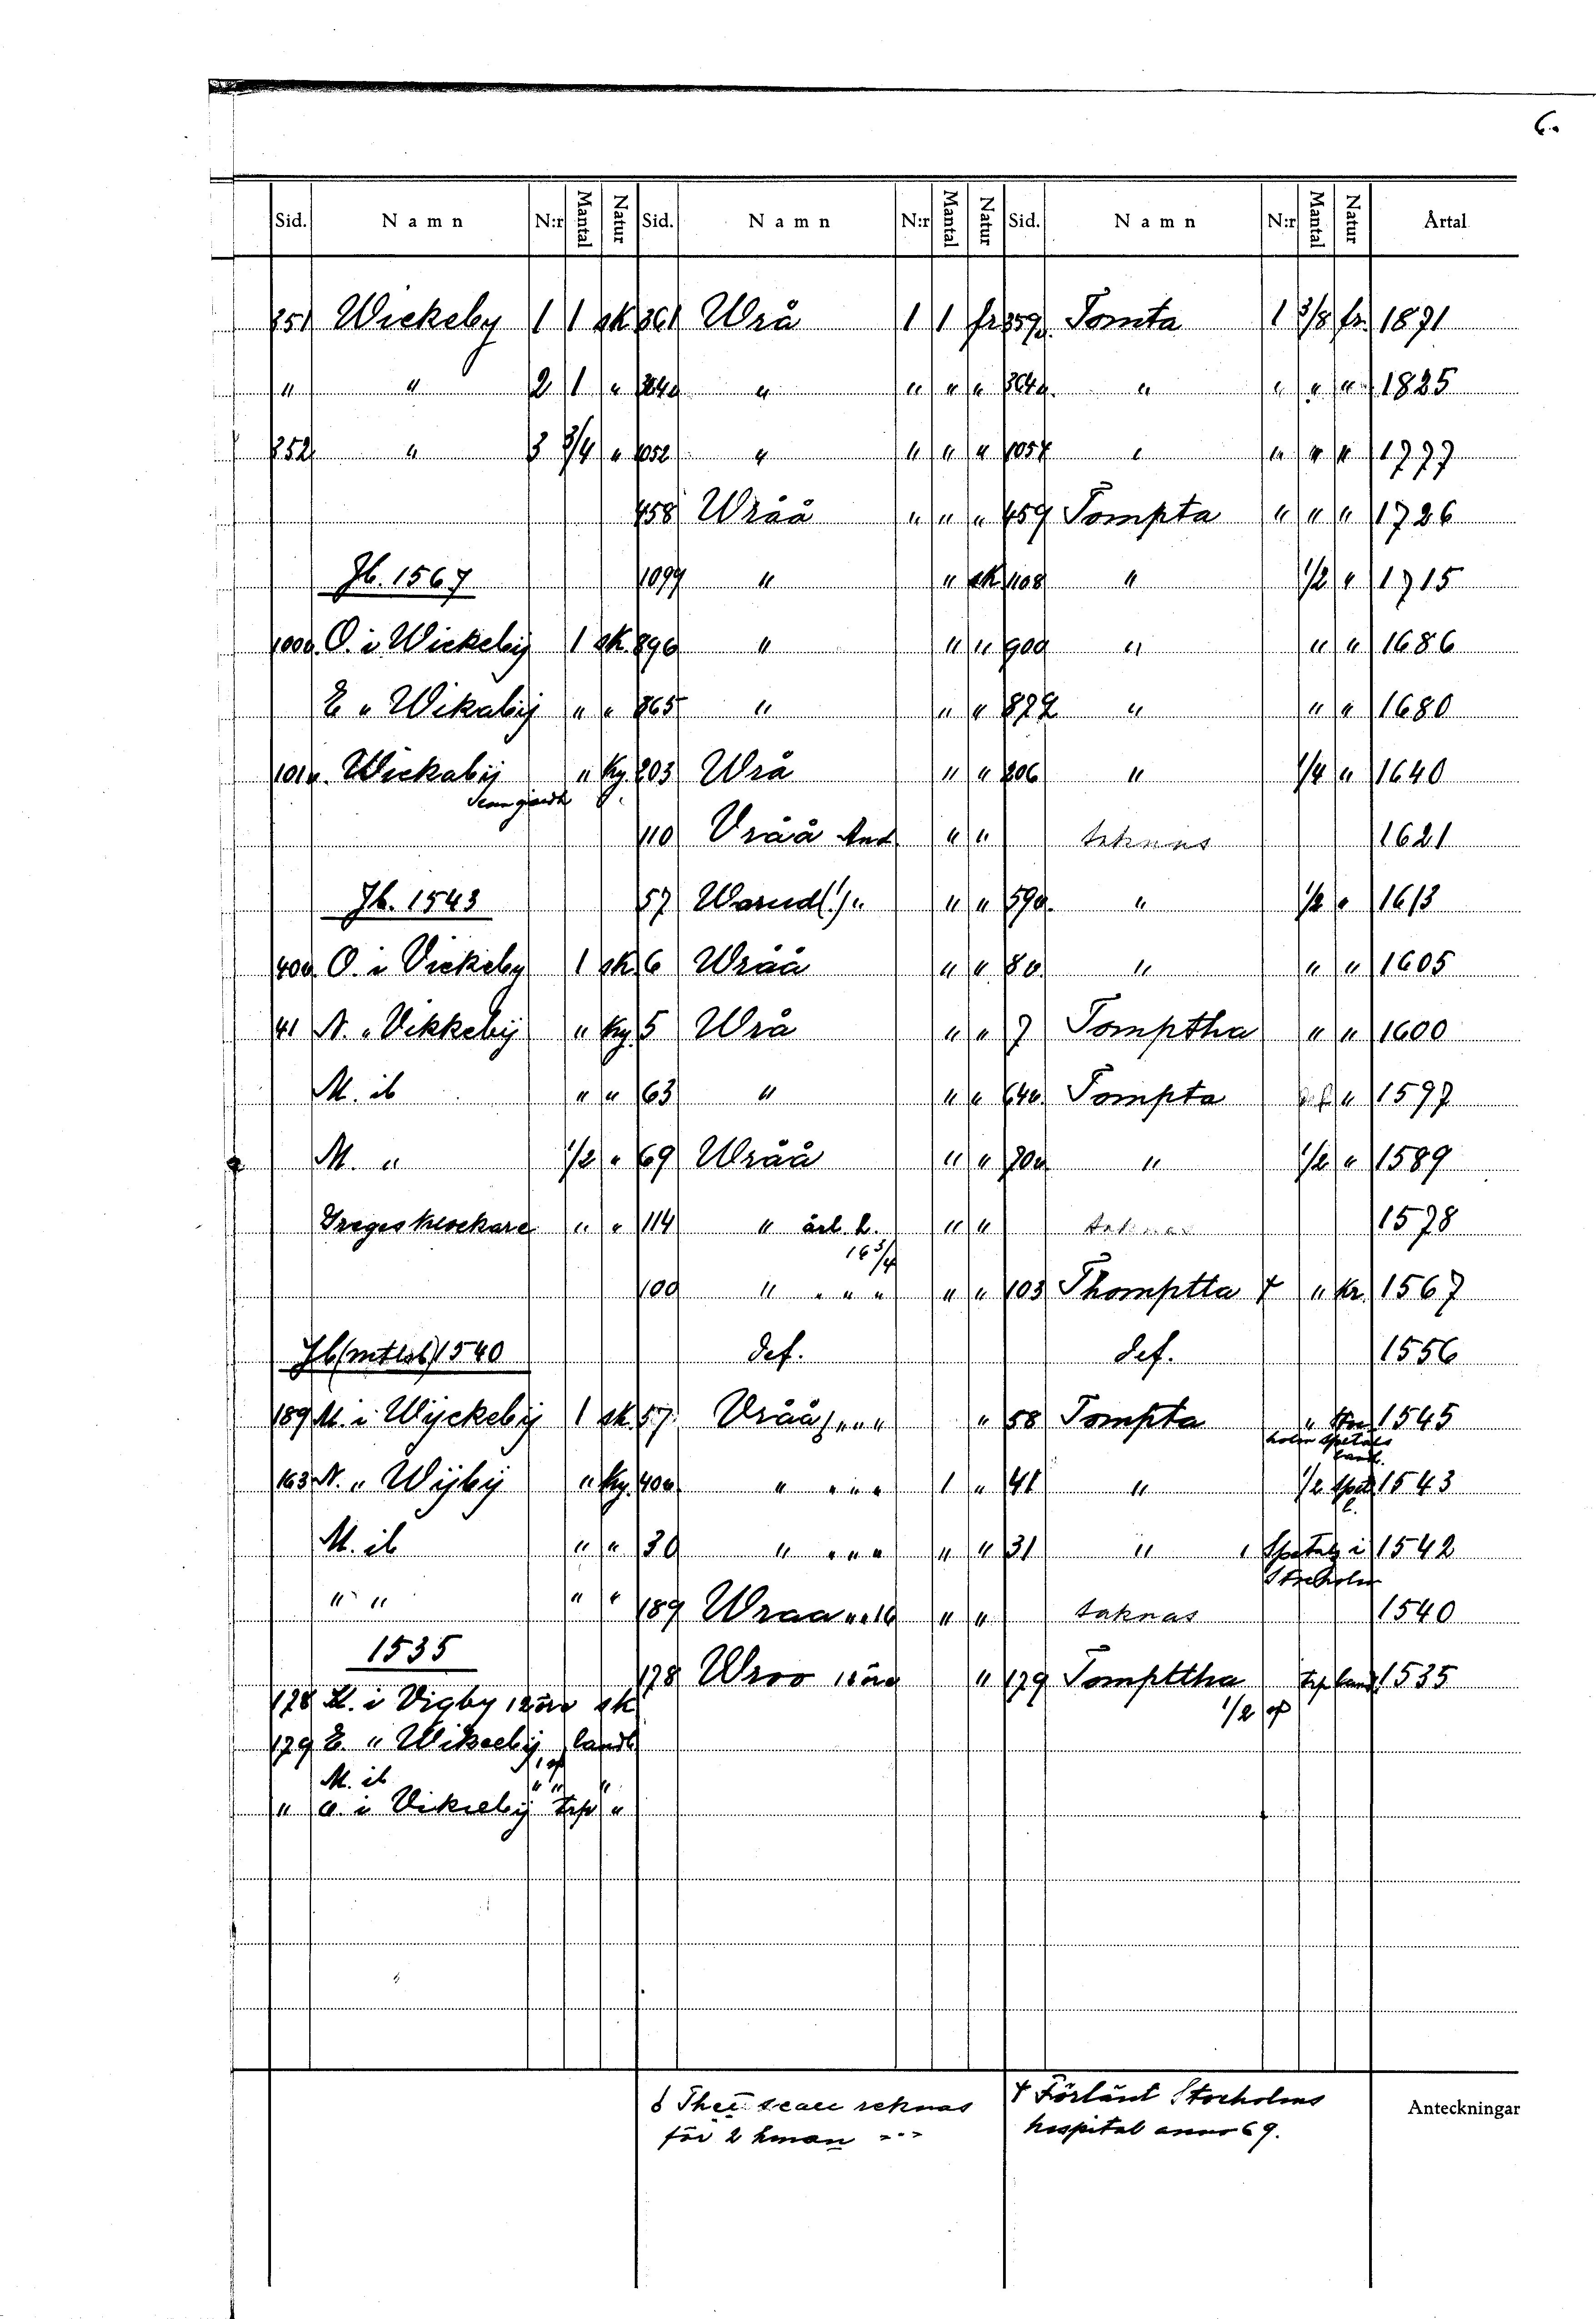 6.
Sid. Namn N:r Mantal Natur Sid. Namn N:r Mantal Natur Sid. Namn N:r Mantal Natur Årtal
351 Wickeby 1 1 sk. 361 Wrå 1 1 fr. 359 Tomta 1 3/8 fr. 1871
" " 2 1 " " " " " 364a. " " " " 1825
352 " 3 3/4 " 1052 " " " " 1057 " " " " 1777
458 Wråå " " " 459 Tompta " " " 1726
Jb. 1567 1099 " " sk. 1108 " 1/2 " 1715
100a. O. i Wickebÿ 1 sk. 896 " " " 900 " " " 1686
E " Wikabÿ " " 865 " " " 872 " " " 1680
101a. Wickabÿ " ky. 203 Wrå " " 206 " 1/4 " 1640
110 Vråå And " " saknas 1621
Jb. 1543 57 Warud(!) " " " 59a. " 1/2 " 1613
40a. O. i Vickeby 1 sk. 6 Wråå " " 8a. " " " 1605
41 N. " Vikkebÿ " ky. 5 Wrå " " 7 Tomptha " " 1600
M. ib " " 63 " " " 64a. Tompta " 1597
M. " 1/2 " 69 Wråå " " 70a " 1/2 " 1589
Sregesklockare " " 114 " årl. h. " " saknas 1578
16 3/4
100 " " " " " " 103 Thomptta + " kr. 1567
Jb (mtlsb) 1540 def. def. 1556
189 M. i Wÿckebÿ 1 sk. 57. Vråå " " " " 58 Tompta " 1545
holm spetals
landb.
163 N. " Wÿbÿ " ky. 40a. " " " " 1 " 41 " 1/2 1543
M. ib " " 30 " " " " " " 31 " Spetalz i 1542
Stocholm
" " " " 189 Wraa " " 16 " " saknas 1540
1535
178 Wroo " 179 Tompttha trp land 1535
178 i Vigby 12 öre sk 1/2 op
179 E. " Wikaebÿ landb
M. ib " " "
" O. i Vikaebÿ trp "
Thet scall reknas
för 2 hman
+ Förlänt Stocholms
hospital anno 69.
Anteckningar